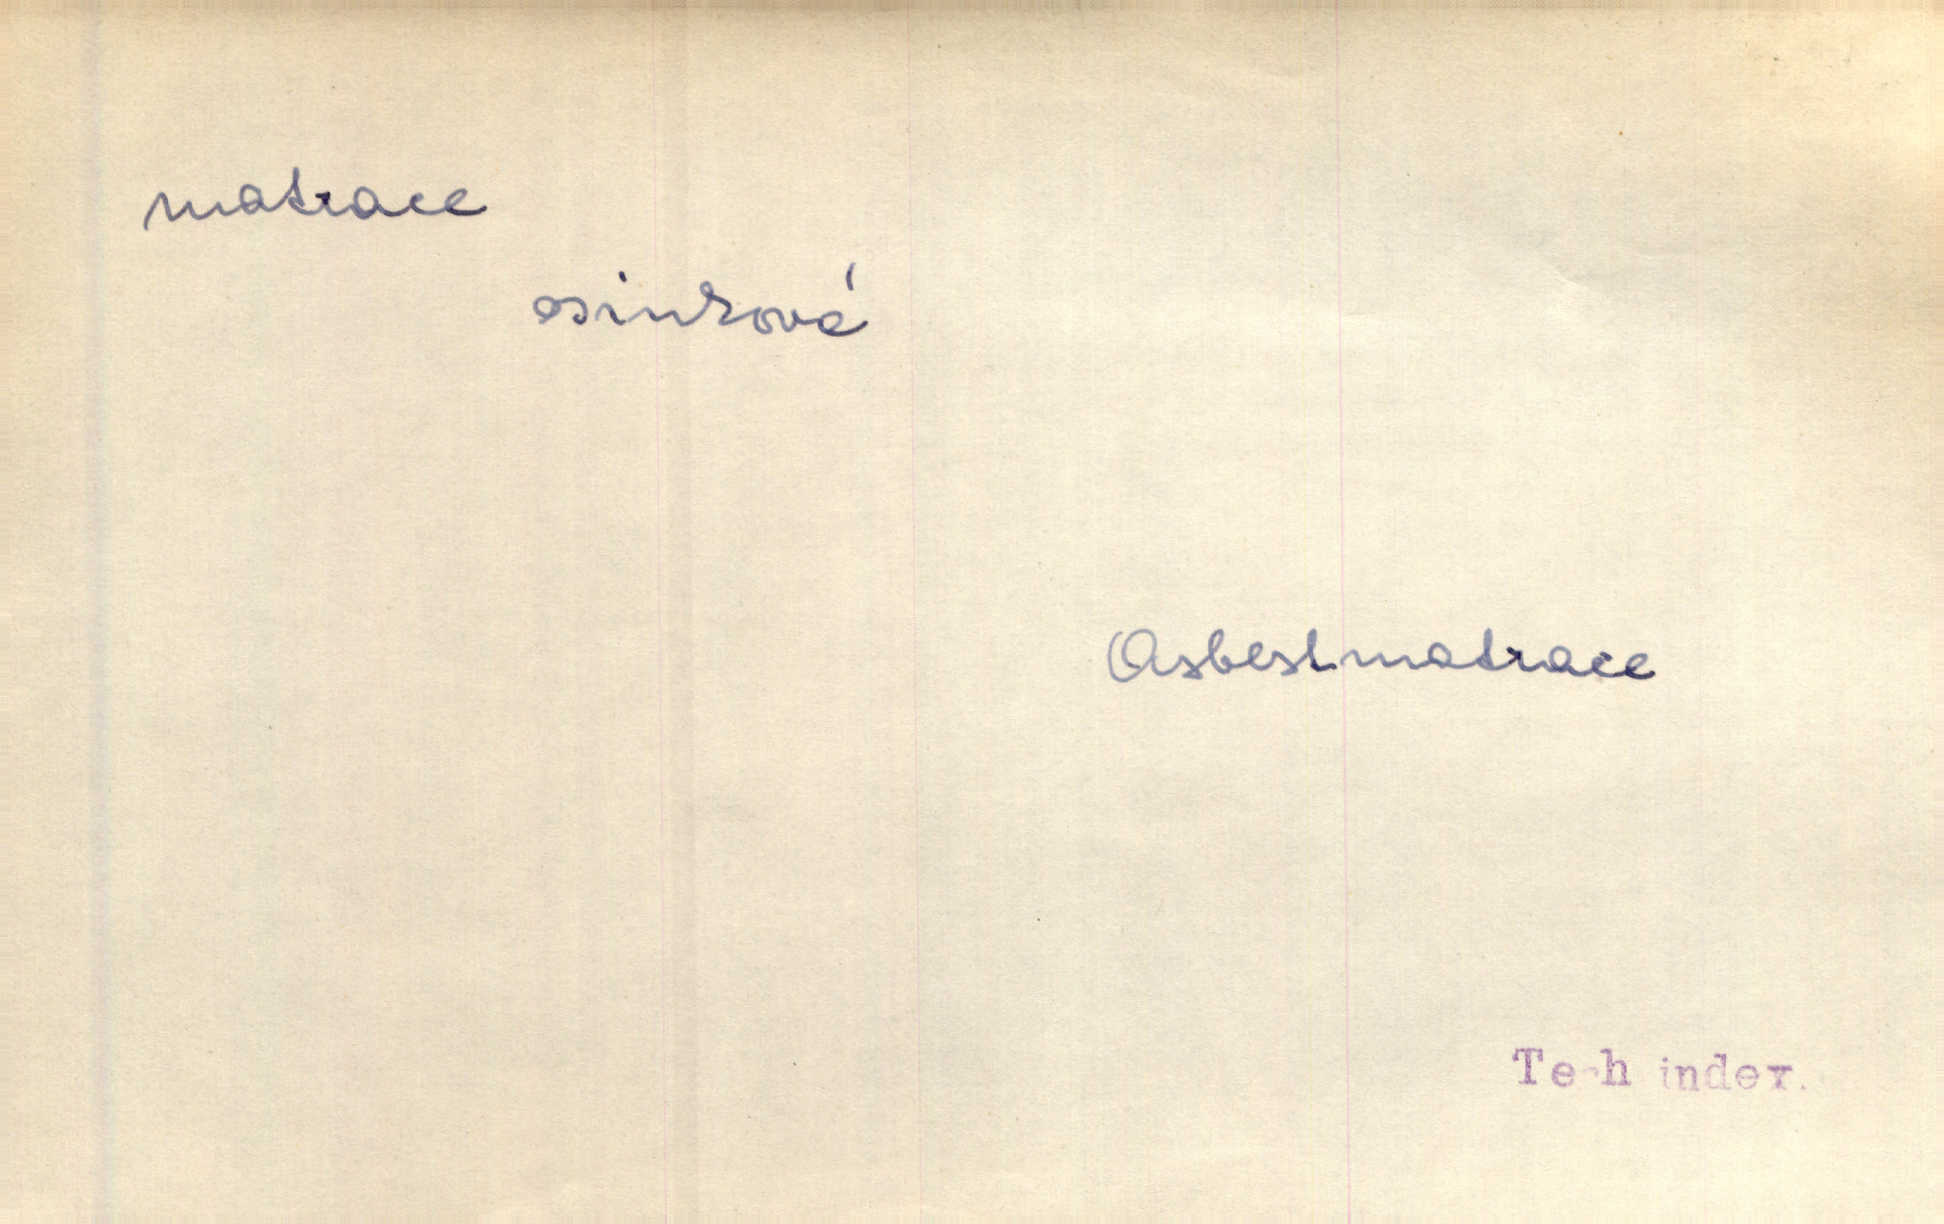 matrace
osinková
Asbestmatrace
Tech index.